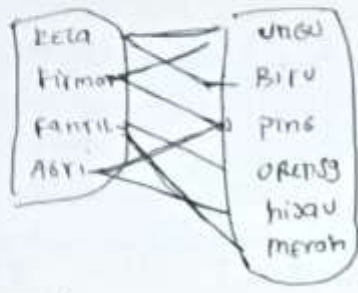 Rela
Firman
Fahril
Asri
UNGU
Biru
PING
ORENSg
hijau
merah